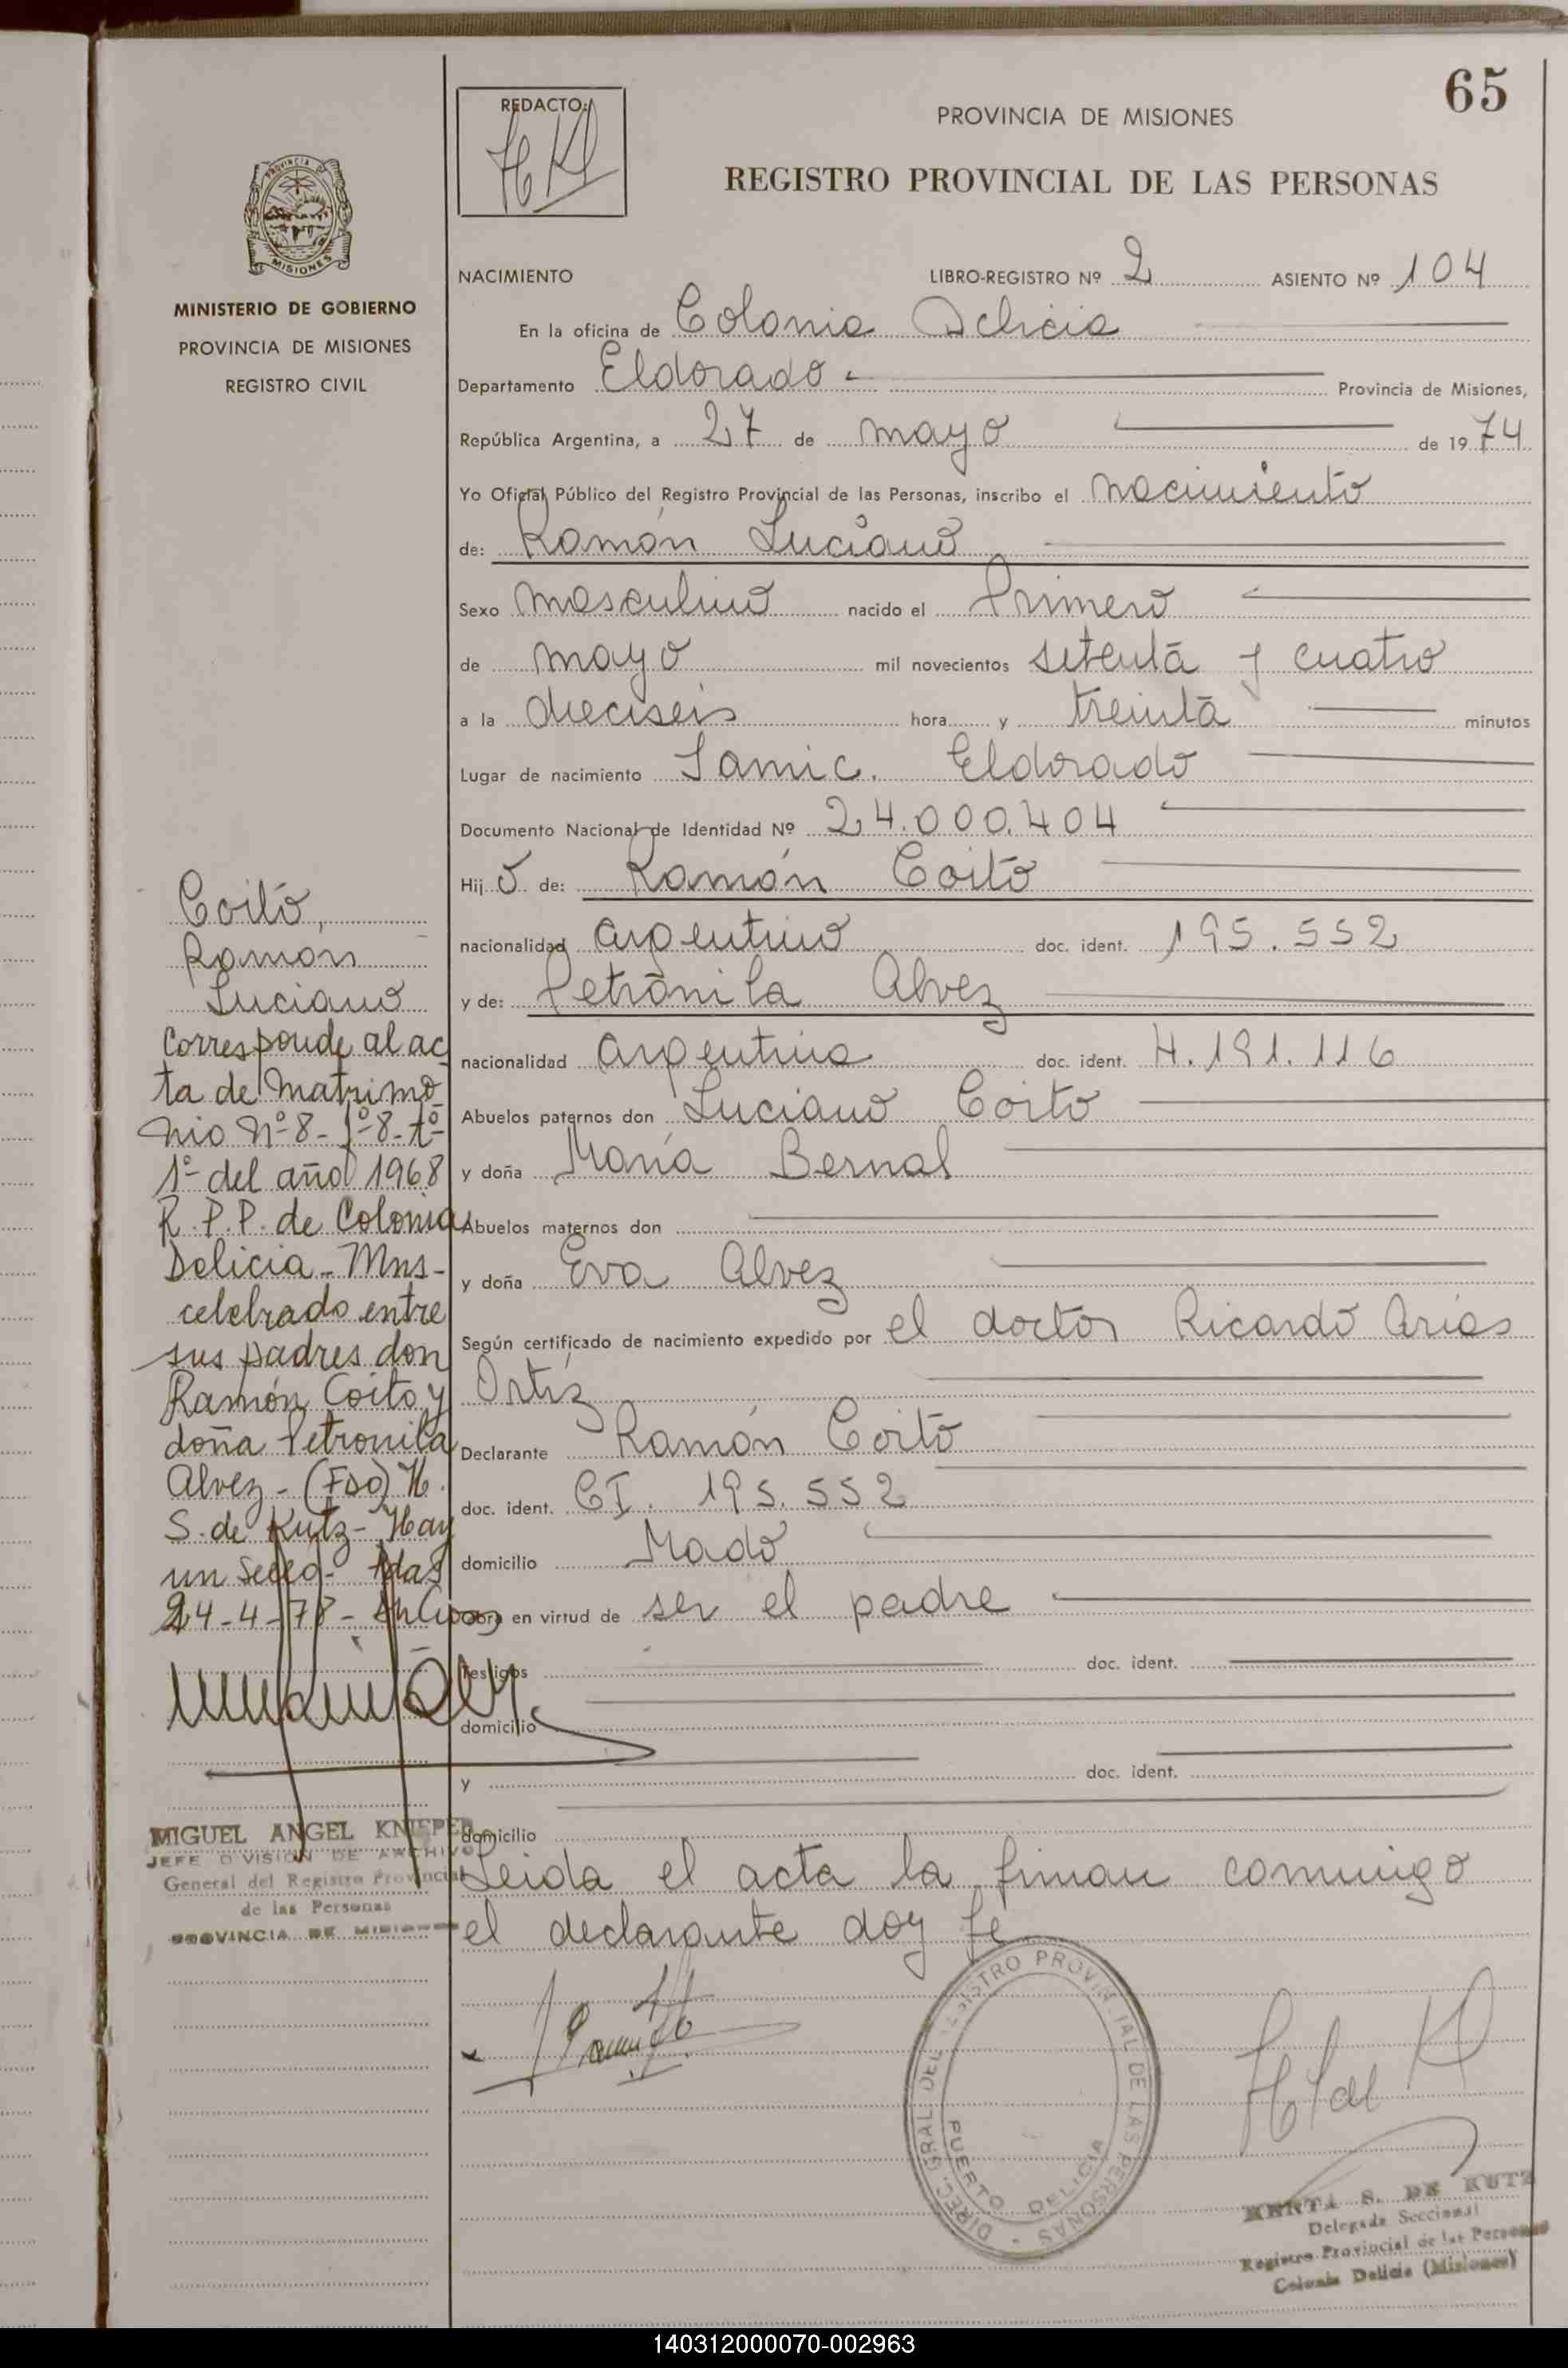 65
REDACTO:
PROVINCIA DE MISIONES
REGISTRO PROVINCIAL DE LAS PERSONAS
PROVINCIA DE
MISIONES
MINISTERIO DE GOBIERNO
PROVINCIA DE MISIONES
REGISTRO CIVIL
NACIMIENTO LIBRO-REGISTRO Nº 2 ASIENTO Nº 104
En la oficina de Colonia Delicia
Departamento Eldorado Provincia de Misiones,
República Argentina, a 27 de mayo de 1974
Yo Oficial Público del Registro Provincial de las Personas, inscribo el nacimiento
de: Ramón Luciano
Sexo masculino nacido el Primero
de mayo mil novecientos setenta y cuatro
a la dieciseis hora y treinta minutos
Lugar de nacimiento Samic. Eldorado
Documento Nacional de Identidad Nº 24.000.404
Hijo de: Ramón Coito
nacionalidad argentino doc. ident. 195.552
y de: Petronila Alvez
nacionalidad argentina doc. ident. 4.191.116
Abuelos paternos don Luciano Coito
y doña María Bernal
Abuelos maternos don
y doña Eva Alvez
Según certificado de nacimiento expedido por el doctor Ricardo Arias
Ortíz
Declarante Ramón Coito
doc. ident. CI. 195.552
domicilio Mado
Obra en virtud de ser el padre
Testigos doc. ident.
domicilio
y doc. ident.
domicilio
Leida el acta la firman conmigo
el declarante doy fé
Coito,
Ramón
Luciano
Corresponde al ac
ta de Matrimo
nio Nº 8- fº 8- tº
1º del año 1968
R.P.P. de Colonia
Delicia - Mns-
celebrado entre
sus padres don
Ramón Coito y
doña Petronila
Alvez - (FDO) H.
S. de Kutz - Hay
un Sello - Pdas
24-4-78-
MIGUEL ANGEL KNIEPER
JEFE DIVISION DE ARCHIVO
General del Registro Provincial
de las Personas
PROVINCIA DE MISIONES
DIREC. GRAL. DEL REGISTRO PROVINCIAL DE LAS PERSONAS
PUERTO DELICIA
HERTA S. DE KUTZ
Delegada Seccional
Registro Provincial de las Personas
Colonia Delicia (Misiones)
140312000070-002963